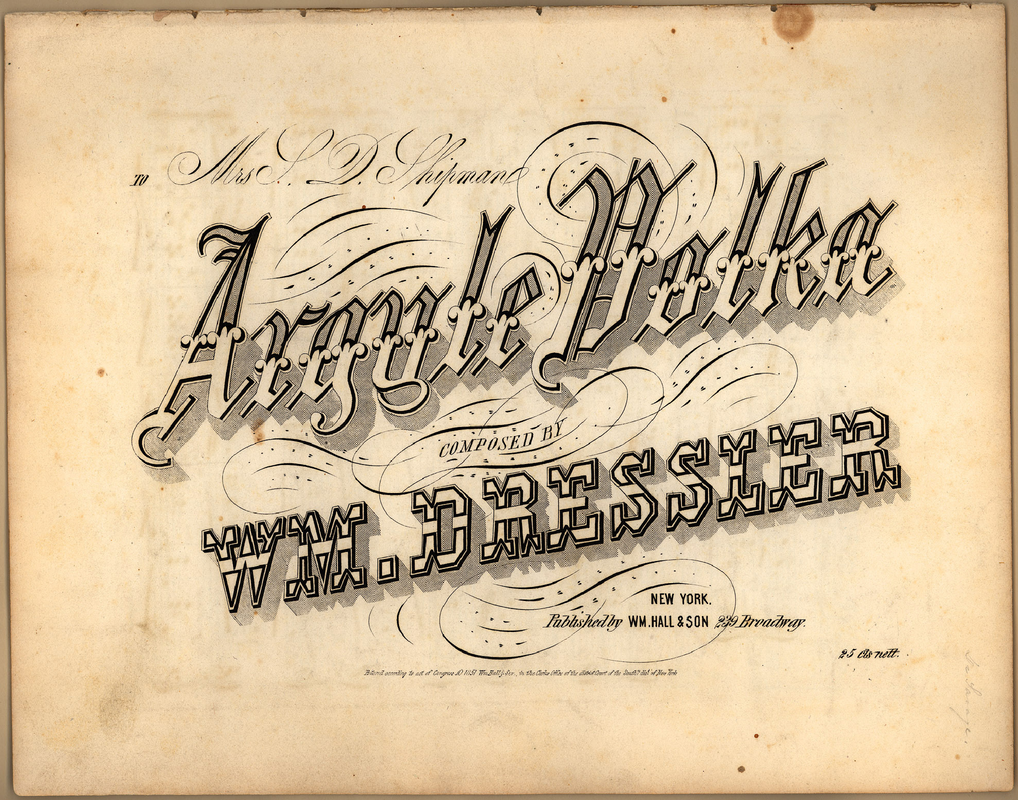 TO Mrs S. D. Shipman
Argyle Polka
COMPOSED BY
WM. DRESSLER
NEW YORK.
Published by WM. HALL & SON 239 Broadway.
25 cts nett.
Entered according to act of Congress AD 1851 Wm. Hall & Son, in the Clerks Office of the district Court of the South.n dist. of New York